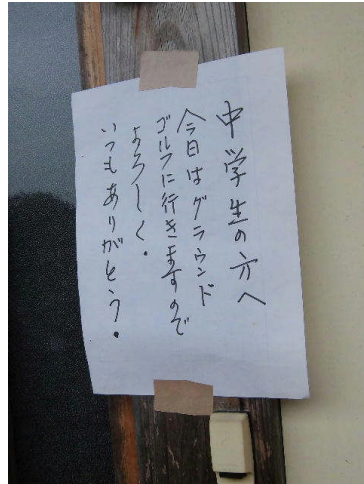 中学生の方へ
今日はグラウンド
ゴルフに行きますので
よろしく.
いつもありがとう.